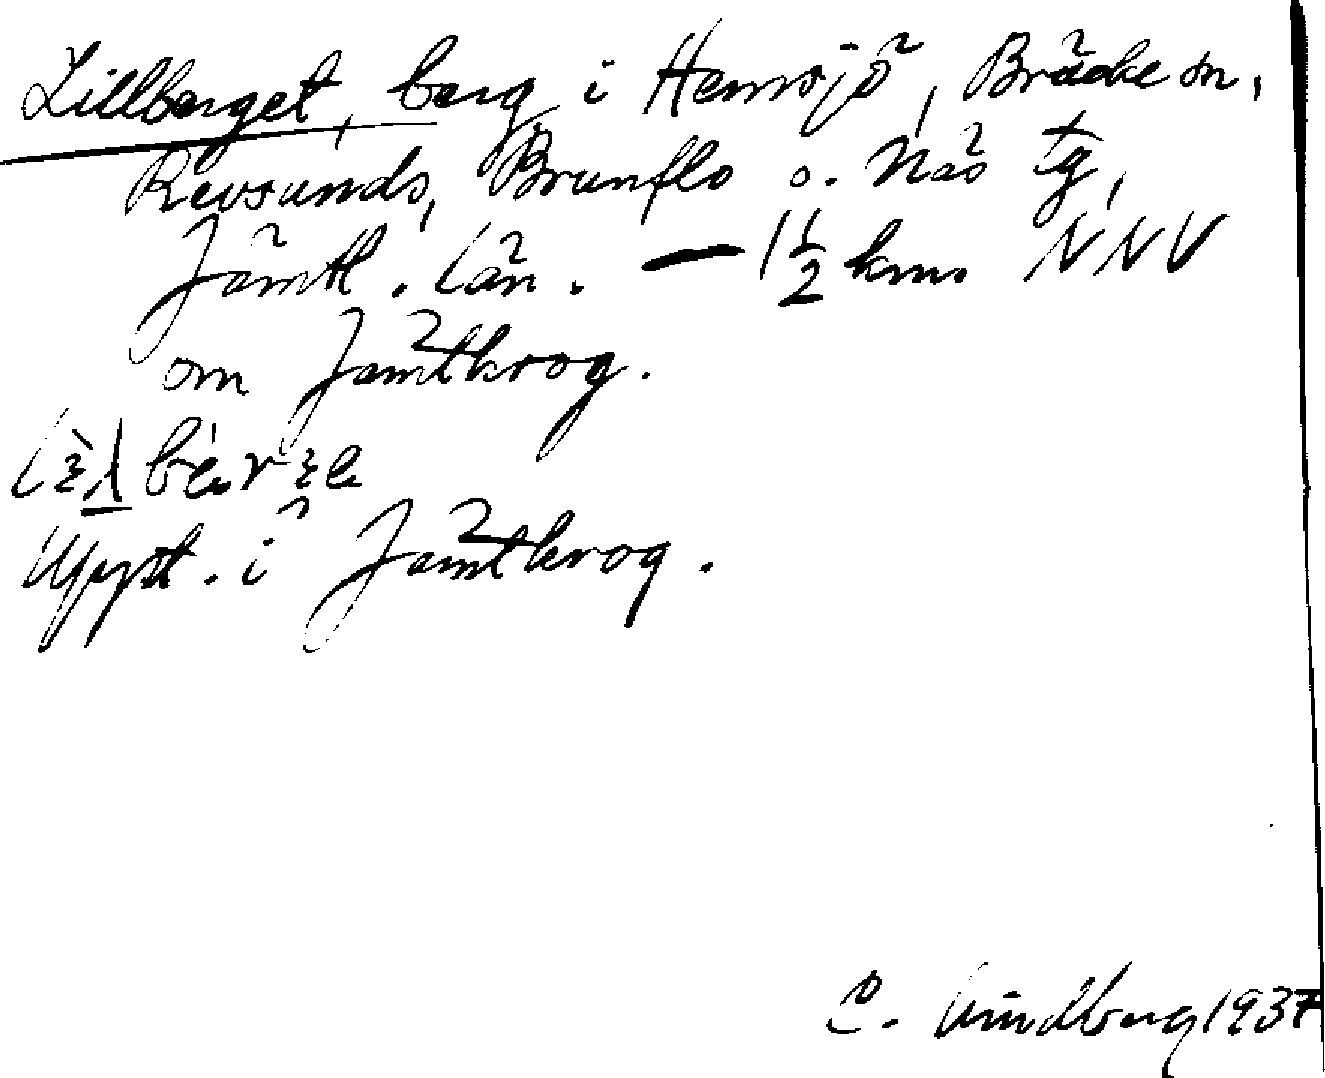 Lillberget, berg i Hemsjö, Bräcke sn,
Revsunds, Brunflo o. Näs tg,
Jämtl. län. — 1½ km. NNV
om Jämtkrog.
Uppt. i Jämtkrog.
Lindberg 1937